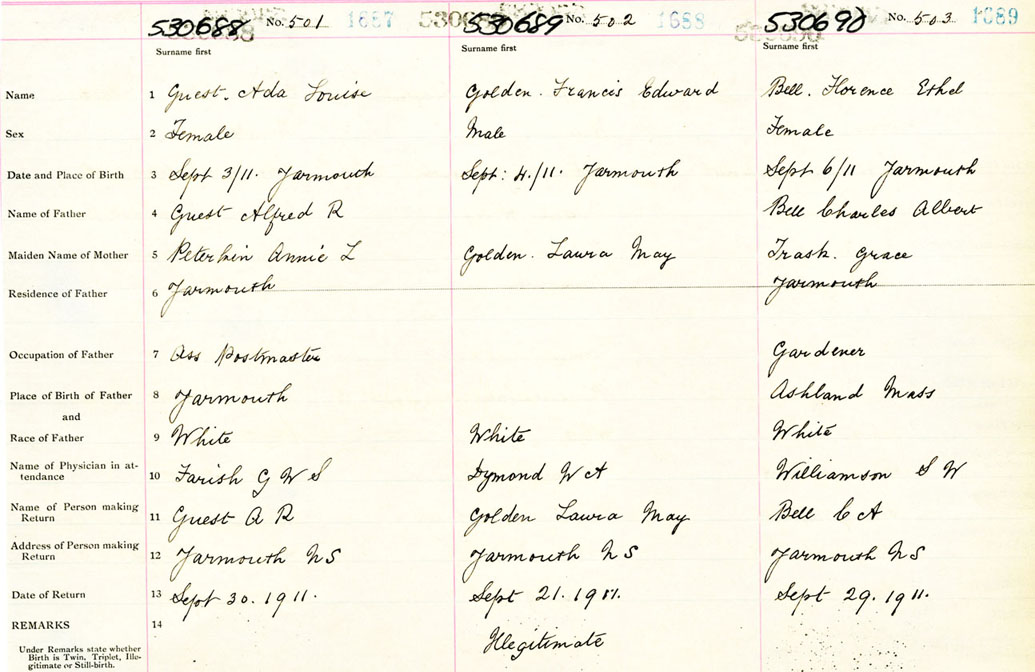 530688 No. 501 1687 530689 No. 502 1688 530690 No. 503 1689
Surname first Surname first Surname first
Name 1 Guest. Ada Louise Golden. Francis Edward Bell. Florence Ethel
Sex 2 Female Male Female
Date and Place of Birth 3 Sept 3/11. Yarmouth Sept: 4./11. Yarmouth Sept 6/11 Yarmouth
Name of Father 4 Guest Alfred R Bell Charles Albert
Maiden Name of Mother 5 Peterkin Annie L Golden. Laura May Trask. Grace
Residence of Father 6 Yarmouth Yarmouth
Occupation of Father 7 Ass Postmaster Gardener
Place of Birth of Father 8 Yarmouth Ashland Mass
and
Race of Father 9 White White White
Name of Physician in at-
tendance 10 Farish G W S Dymond W A Williamson S W
Name of Person making
Return 11 Guest A R Golden Laura May Bell C A
Address of Person making
Return 12 Yarmouth N S Yarmouth N S Yarmouth N S
Date of Return 13 Sept 30. 1911. Sept 21. 1911. Sept 29. 1911.
REMARKS 14
Under Remarks state whether
Birth is Twin, Triplet, Ille-
gitimate or Still-birth.
Illegitimate